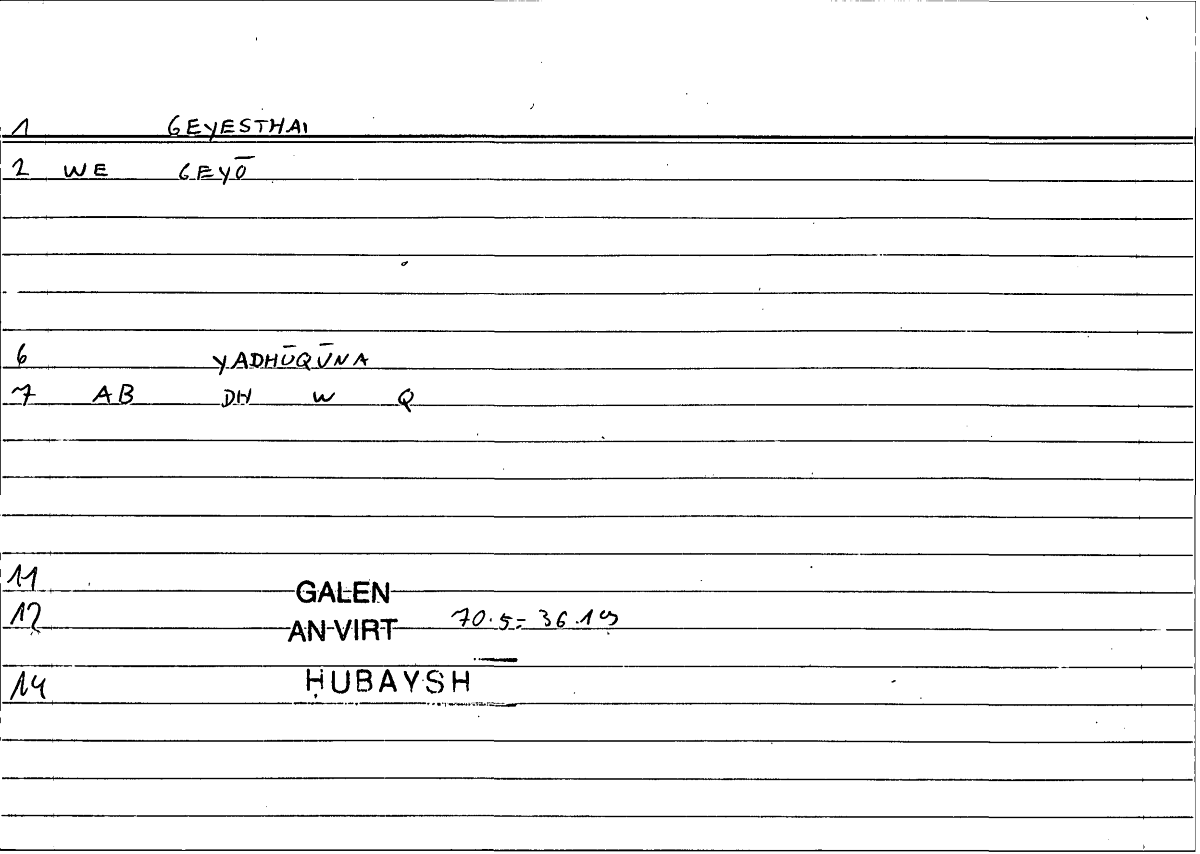 1 GEYESTHAI
2 WE GEYŌ
6 YADHŪQŪNA
7 AB DH W Q
11 GALEN
12 AN VIRT 70.5= 36.19
14 ḤUBAYSH